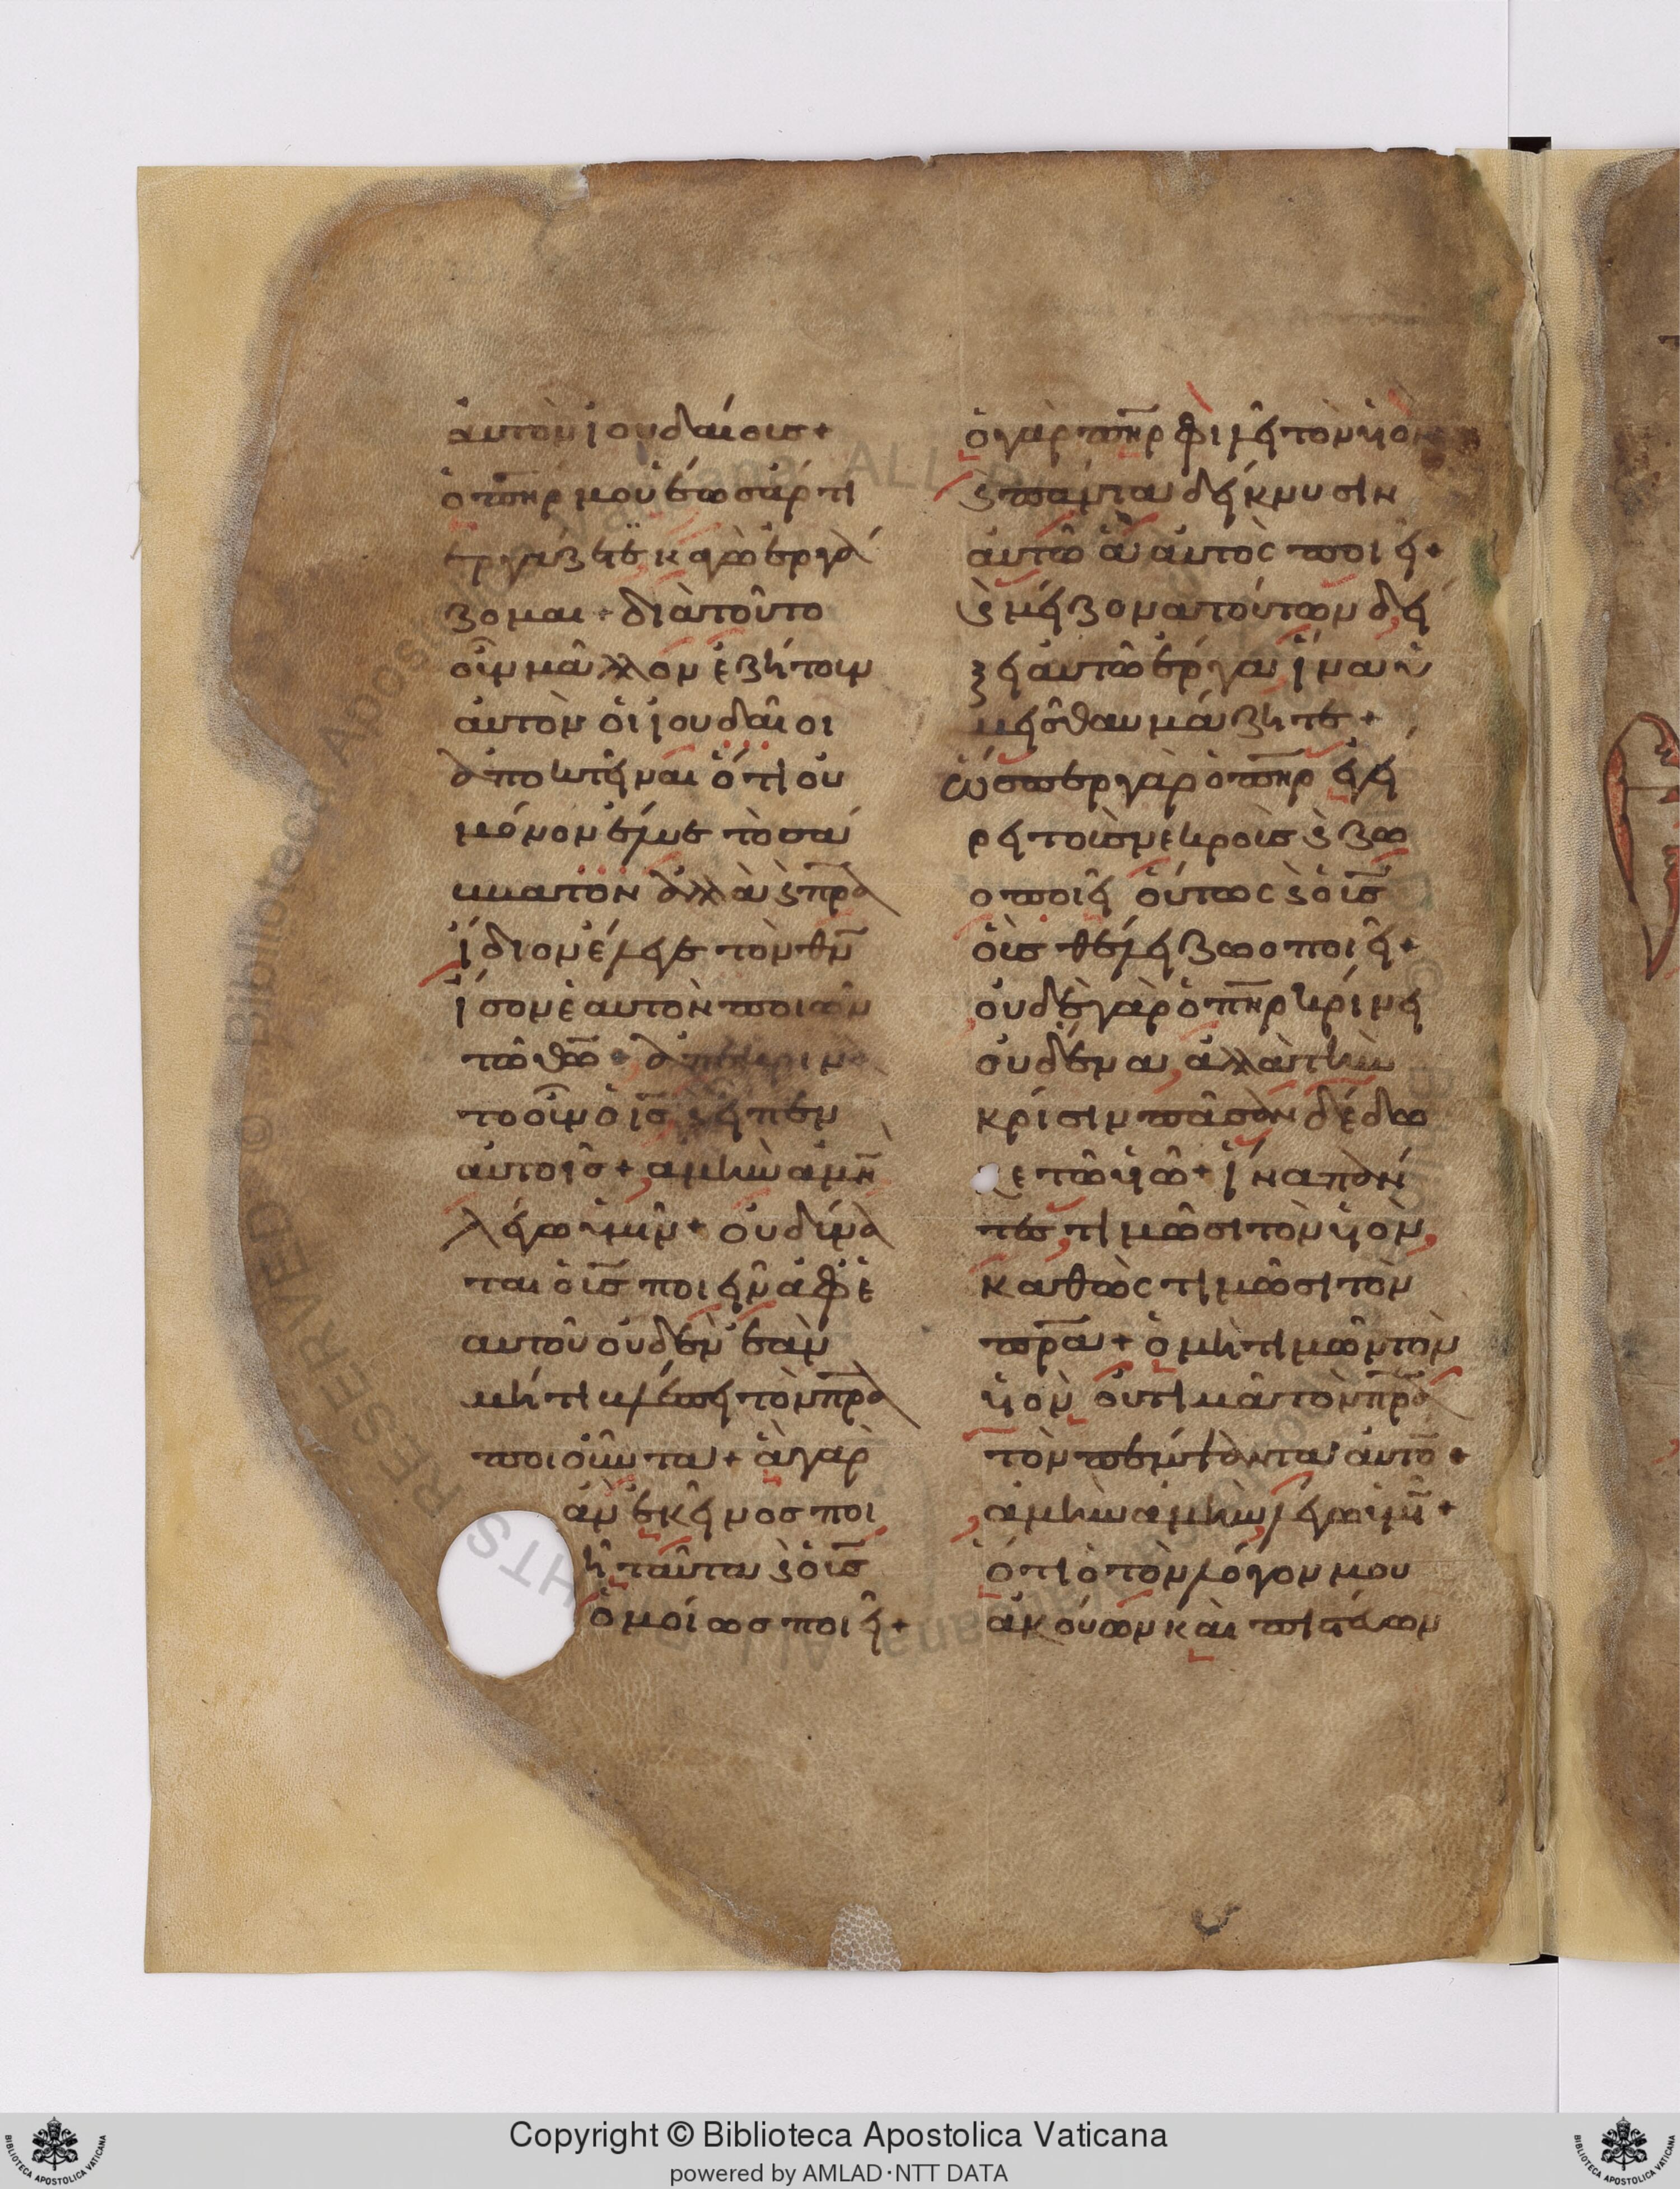 ἀυτὸν ἰουδαίοις +
ὁ πη̅ρ μου ἕως ἄρτι
ἐργάζετε κἀγὼ ἐργά
ζομαι + διὰ τοῦτο
οὖν μᾶλλον ἐζήτουν
αὐτὸν ὁι ἰουδαῖοι
ἀποκτῆναι ὅτι οὐ
μόνον ἔλυε τὸ σά
ββατον ἀλλὰ ϗ πρ̅α
ἴδιον ἔλεγε τὸν θν̅
ἴσον ἑαυτὸν ποιῶν
τῶ θω̅ + ἀπεκρίνα
το οὖν ὁ ις̅ ϗ εἶπεν
αὐτοῖς + ἀμὴν ἀμη̅
λέγω ὑμῖν + οὐ δύνα
ται ὁ υις̅ ποιεῖν ἀφ' ἑ
αυτοῦ οὐδὲν ἐὰν
μή τι βλέπει τὸν πρ̅α
ποιοῦντα + ἃ γὰρ
ἂν ἐκεῖνος ποι
ῆ ταῦτα ϗ ὁ υις̅
ὁμοίως ποιεῖ +
ὁ γὰρ πη̅ρ φιλεῖ τὸν υἱὸν
ϗ πάντα δείκνυσιν
αὐτῶ ἃ αὐτὸς ποιεῖ +
ϗ μείζονα τούτων δεί
ξει αὐτῶ ἔργα ἵνα ὑ
μεῖς θαυμάζητε +
ὥσπερ γὰρ ὁ πη̅ρ ἐγεί
ρει τοὺς νεκροὺς ϗ ζω
οποιεῖ οὕτως ϗ ὁ υις̅
οὓς θέλει ζωοποιεῖ +
οὐδὲ γὰρ ὁ πη̅ρ κρίνει
οὐδένα ἀλλὰ τὴν
κρίσιν πᾶσαν δέδω
κε τῶ υἱῶ + ἵνα πάν
τες τιμῶσι τὸν υἱὸν,
καθὼς τιμῶσι τὸν
πρ̅α + ὁ μὴ τιμῶν τὸν
υἱὸν οὐ τιμᾶ τὸν πρ̅α
τὸν πέμψαντα αὐτο̅ +
ἀμὴν ἀμὴν λέγω ὑμι̅ +
ὅτι ὁ τὸν λόγον μου
ἀκούων καὶ πιστεύων
Copyright © Biblioteca Apostolica Vaticana
powered by AMLAD·NTT DATA